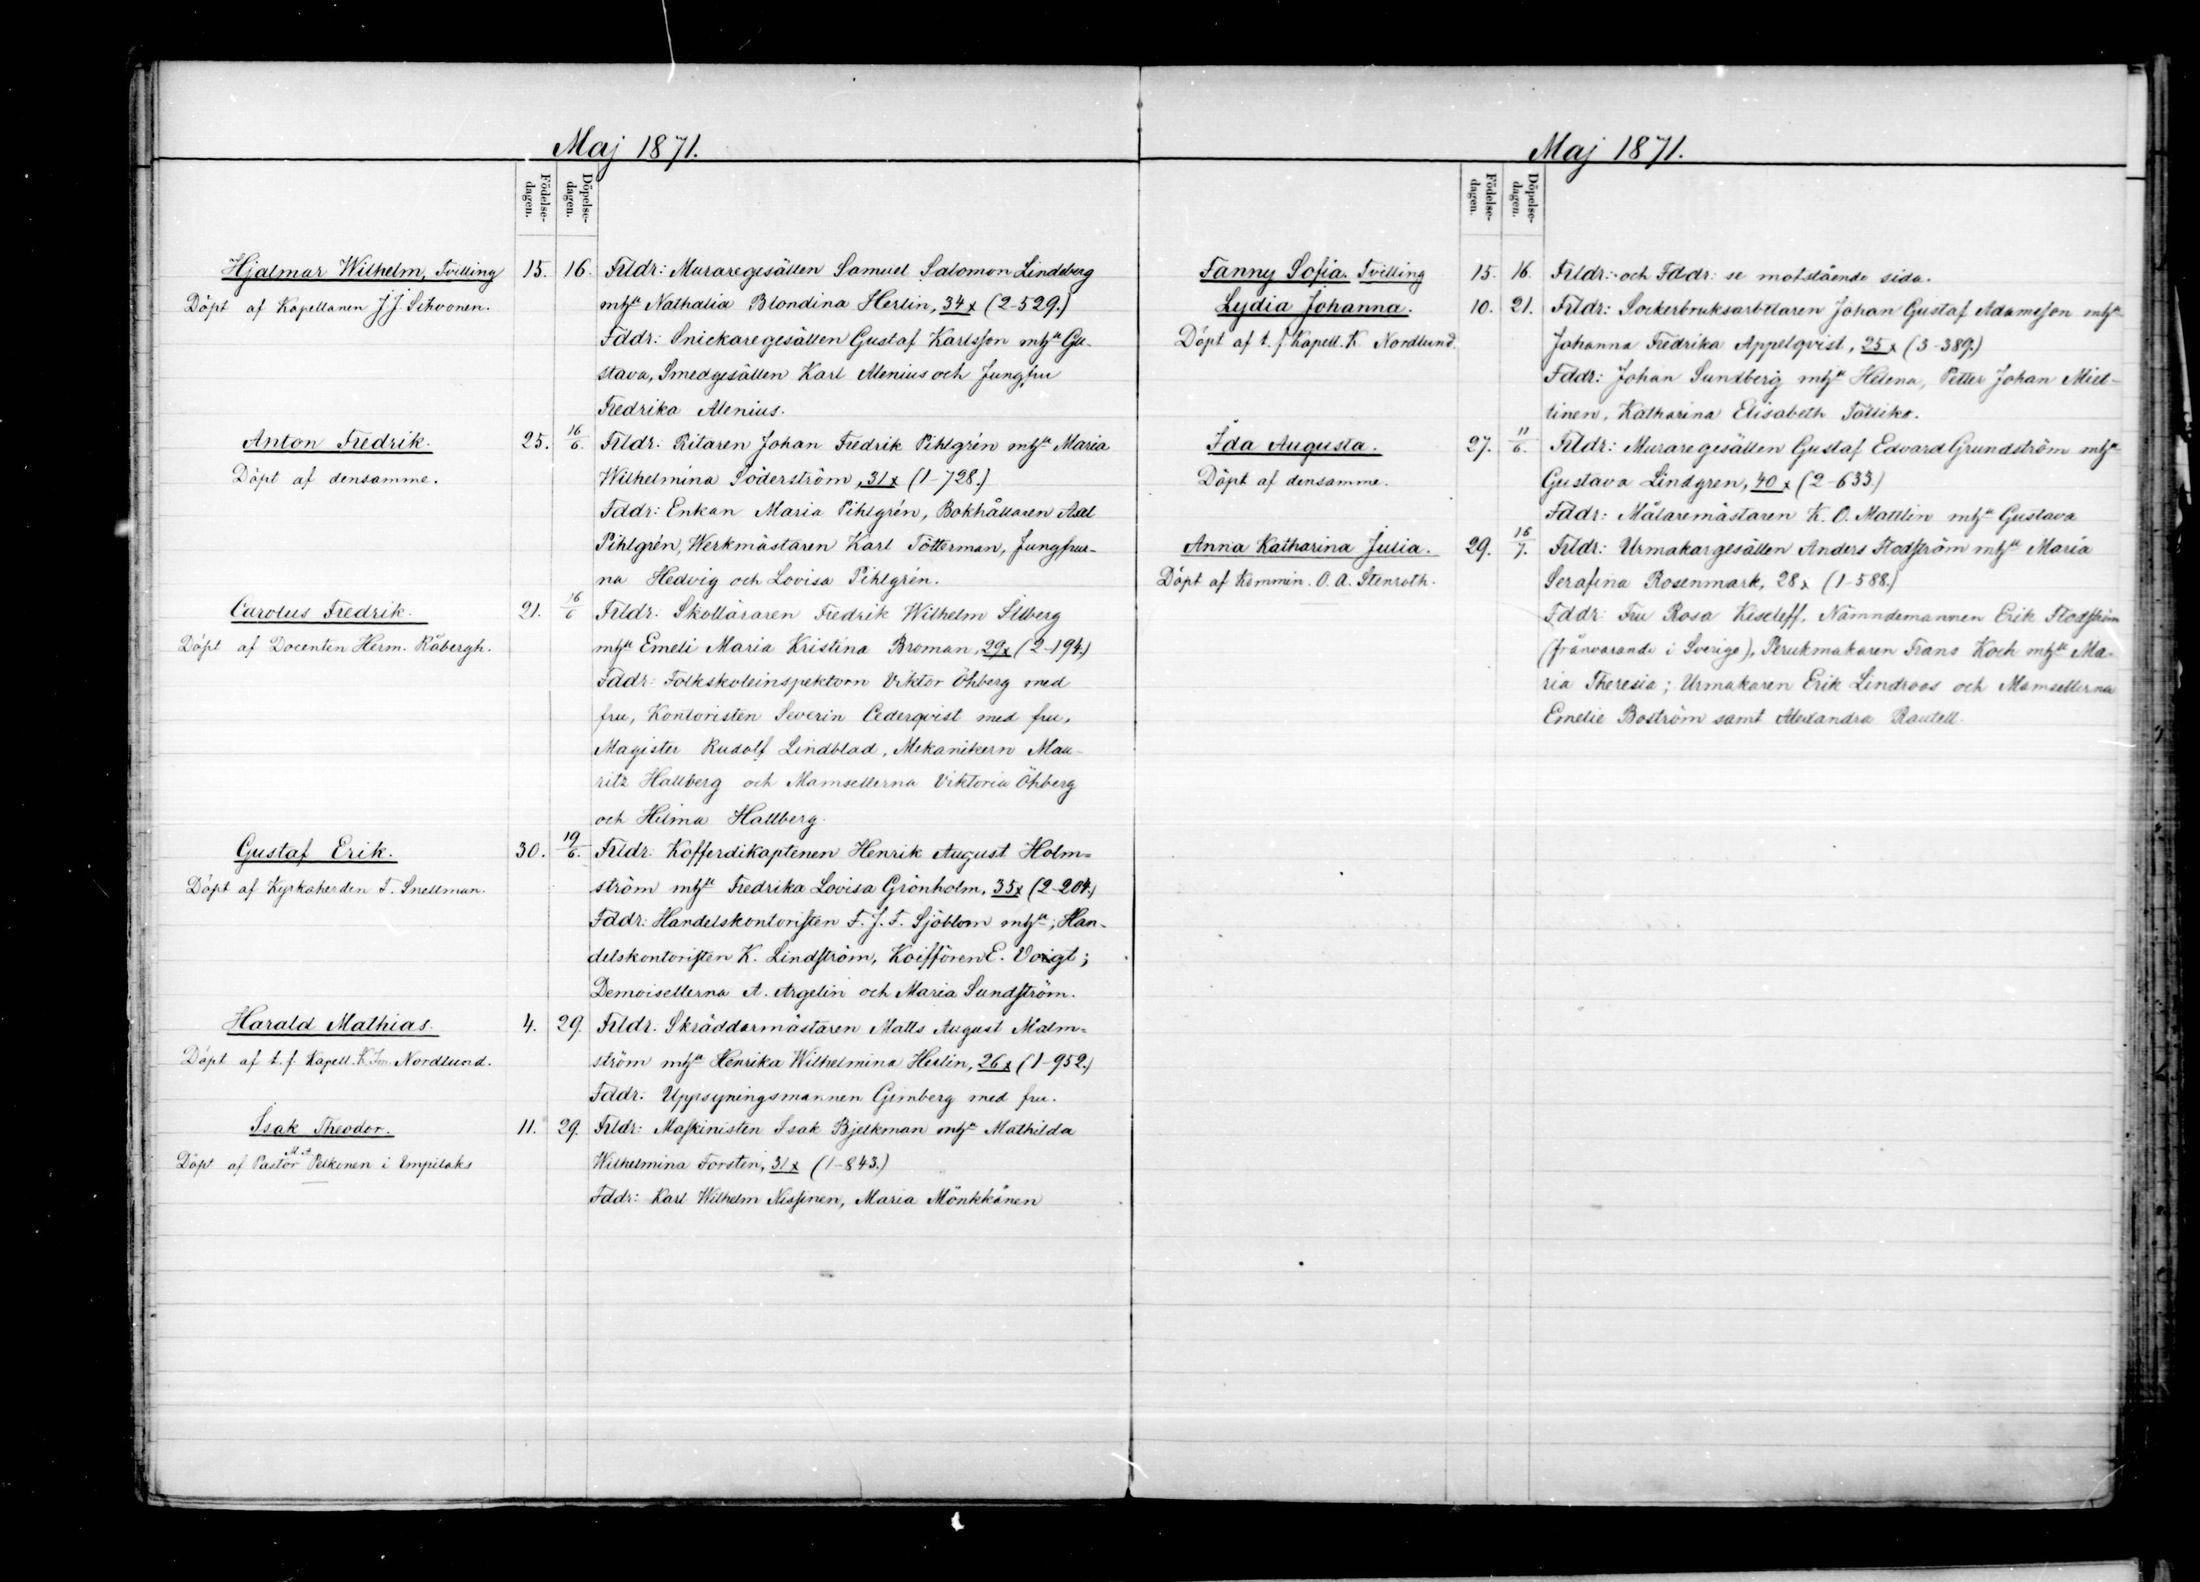 Maj 1871.
Födelse-
dagen.
Döpelse-
dagen.
Hjalmar Wilhelm, Tvilling 15. 16. Frldr: Muraregesällen Samuel Salomon Lindeberg
Döpt af Kapellanen J. J. Sihvonen. mhu Nathalia Blondina Herlin, 34x (2-529.)
Fddr: Snickaregesällen Gustaf Karlsson mhu Gu-
stava, Smedgesällen Karl Alenius och Jungfru
Fredrika Alenius.
Anton Fredrik. 25. 16/6. Frldr: Ritaren Johan Fredrik Pihlgrén mhu Maria
Döpt af densamme. Wilhelmina Söderström, 31x (1-728.)
Fddr: Enkan Maria Pihlgrén, Bokhållaren Axel
Pihlgrén, Werkmästaren Karl Tötterman, Jungfrur-
na Hedvig och Lovisa Pihlgrén.
Carolus Fredrik. 21. 16/6 Frldr: Skolläraren Fredrik Wilhelm Silberg
Döpt af Docenten Herm. Råbergh. mhu Emeli Maria Kristina Broman, 29x (2-194.)
Fddr: Folkskoleinspektorn Viktor Öhberg med
fru, Kontoristen Severin Cederqvist med fru,
Magister Rudolf Lindblad, Mekanikern Mau-
ritz Hallberg och Mamsellerna Viktoria Öhberg
och Hilma Hallberg.
Gustaf Erik. 30. 19/6. Frldr: Kofferdikaptenen Henrik August Holm=
Döpt af Kyrkoherden F. Snellman. ström mhu Fredrika Lovisa Grönholm, 35x (2-204.)
Fddr: Handelskontoristen F. J. F. Sjöblom mhu; Han-
delskontoristen K. Lindström, Koiffören E. Voigt;
Demoisellerna A. Argelin och Maria Sundström.
Harald Mathias. 4. 29. Frldr: Skräddarmästaren Matts August Malm=
Döpt af t. f. Kapell. K. Nordlund. ström mhu Henrika Wilhelmina Herlin, 26x (1-952.)
Fddr: Uppsyningsmannen Gimberg med fru.
Isak Theodor. 11. 29. Frldr: Maskinisten Isak Bjelkman mhu Mathilda
Döpt af Pastor M. A. Pelkonen i Impilaks Wilhelmina Forsten, 31x (1-843.)
Fddr: Karl Wilhelm Nissinen, Maria Mönkkönen
Maj 1871.
Födelse-
dagen.
Döpelse-
dagen.
Fanny Sofia. Tvilling 15. 16. Frldr: och Fddr: se motstående sida.
Lydia Johanna. 10. 21. Frldr: Sockerbruksarbetaren Johan Gustaf Adamsson mhu
Döpt af t. f. Kapell. K. Nordlund. Johanna Fredrika Appelqvist, 25x (3-389.)
Fddr: Johan Sundberg mhu Helena, Petter Johan Miet-
tinen, Katharina Elisabeth Tällikö.
Ida Augusta. 27. 11/6. Frldr: Muraregesällen Gustaf Edvard Grundström mhu
Döpt af densamme. Gustava Lindgren, 40x (2-633.)
Fddr: Målaremästaren K. O. Mattlin mhu Gustava
Anna Katharina Julia. 29. 16/7. Frldr: Urmakargesällen Anders Flodström mhu Maria
Döpt af Kommin. O. A. Stenroth. Serafina Rosenmark, 28x (1-588.)
Fddr: Fru Rosa Kiseleff, Nämndemannen Erik Flodström
(frånvarande i Sverige), Perukmakaren Frans Koch mhu Ma-
ria Theresia; Urmakaren Erik Lindroos och Mamsellerna
Emelie Boström samt Alexandra Rautell.